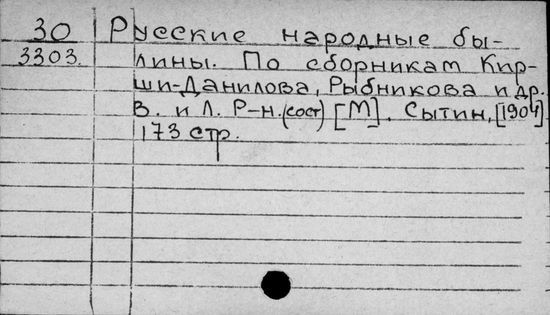 30 Русские народные бы-
3303. лины. По сборникам Кир-
ши-Данилова, Рыбникова и др.
В. и Л. Р-н. (сост) [М]. Сытин, [1904]
173 стр.